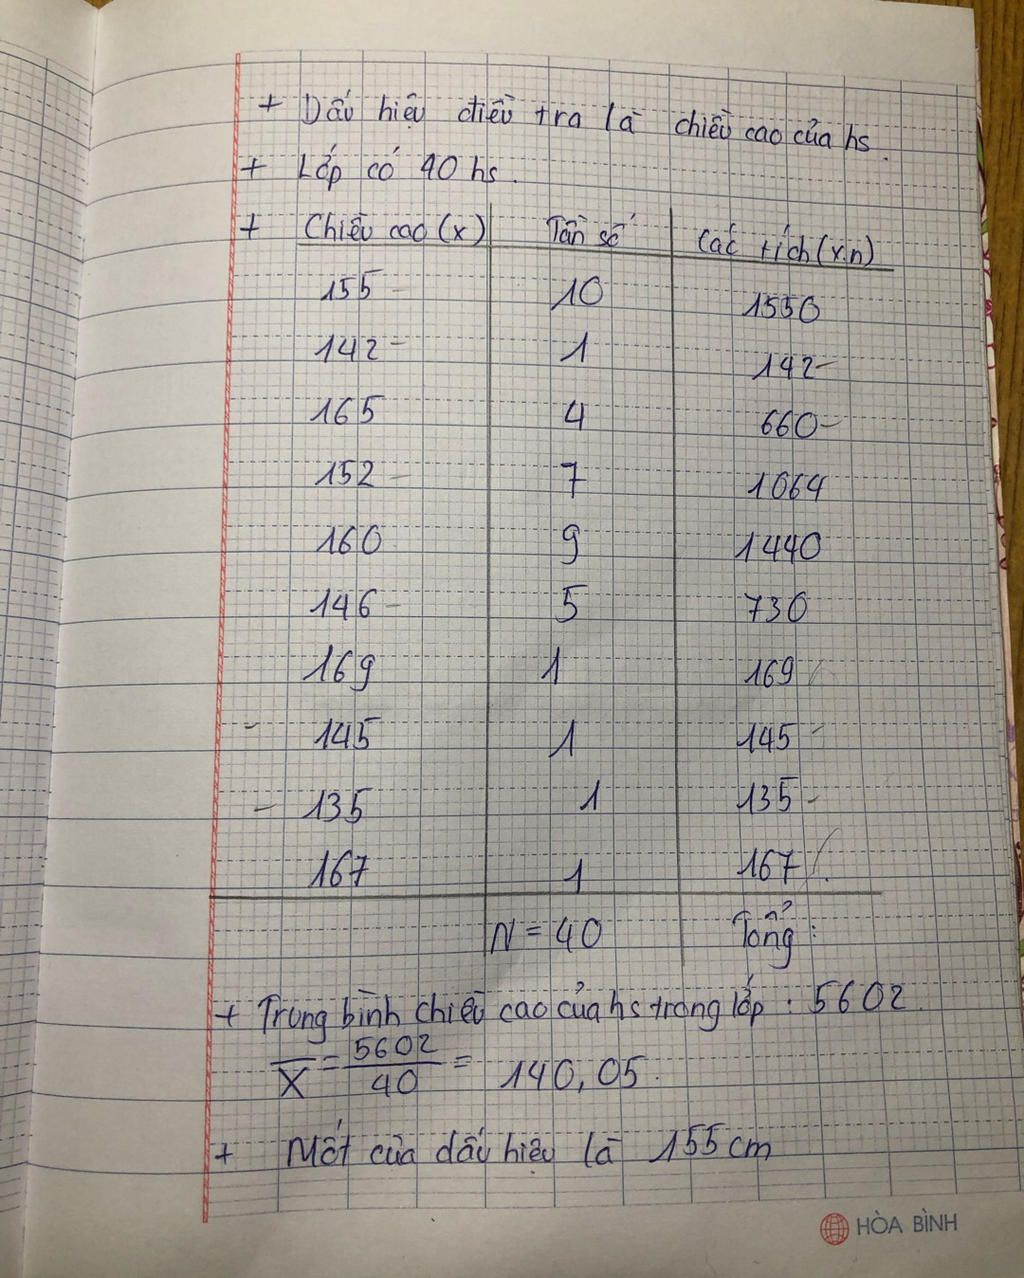 + Dấu hiệu điều tra là chiều cao của hs.
+ Lớp có 40 hs.
+ Chiều cao (x) Tần số Các tích (x.n)
155 10 1550
142 1 142
165 4 660
152 7 1064
160 9 1440
146 5 730
169 1 169
145 1 145
135 1 135
167 1 167
N = 40 Tổng:
+ Trung bình chiều cao của hs trong lớp : 5602.
X̄ = 5602/40 = 140,05.
+ Mốt của dấu hiệu là 155 cm
HÒA BÌNH